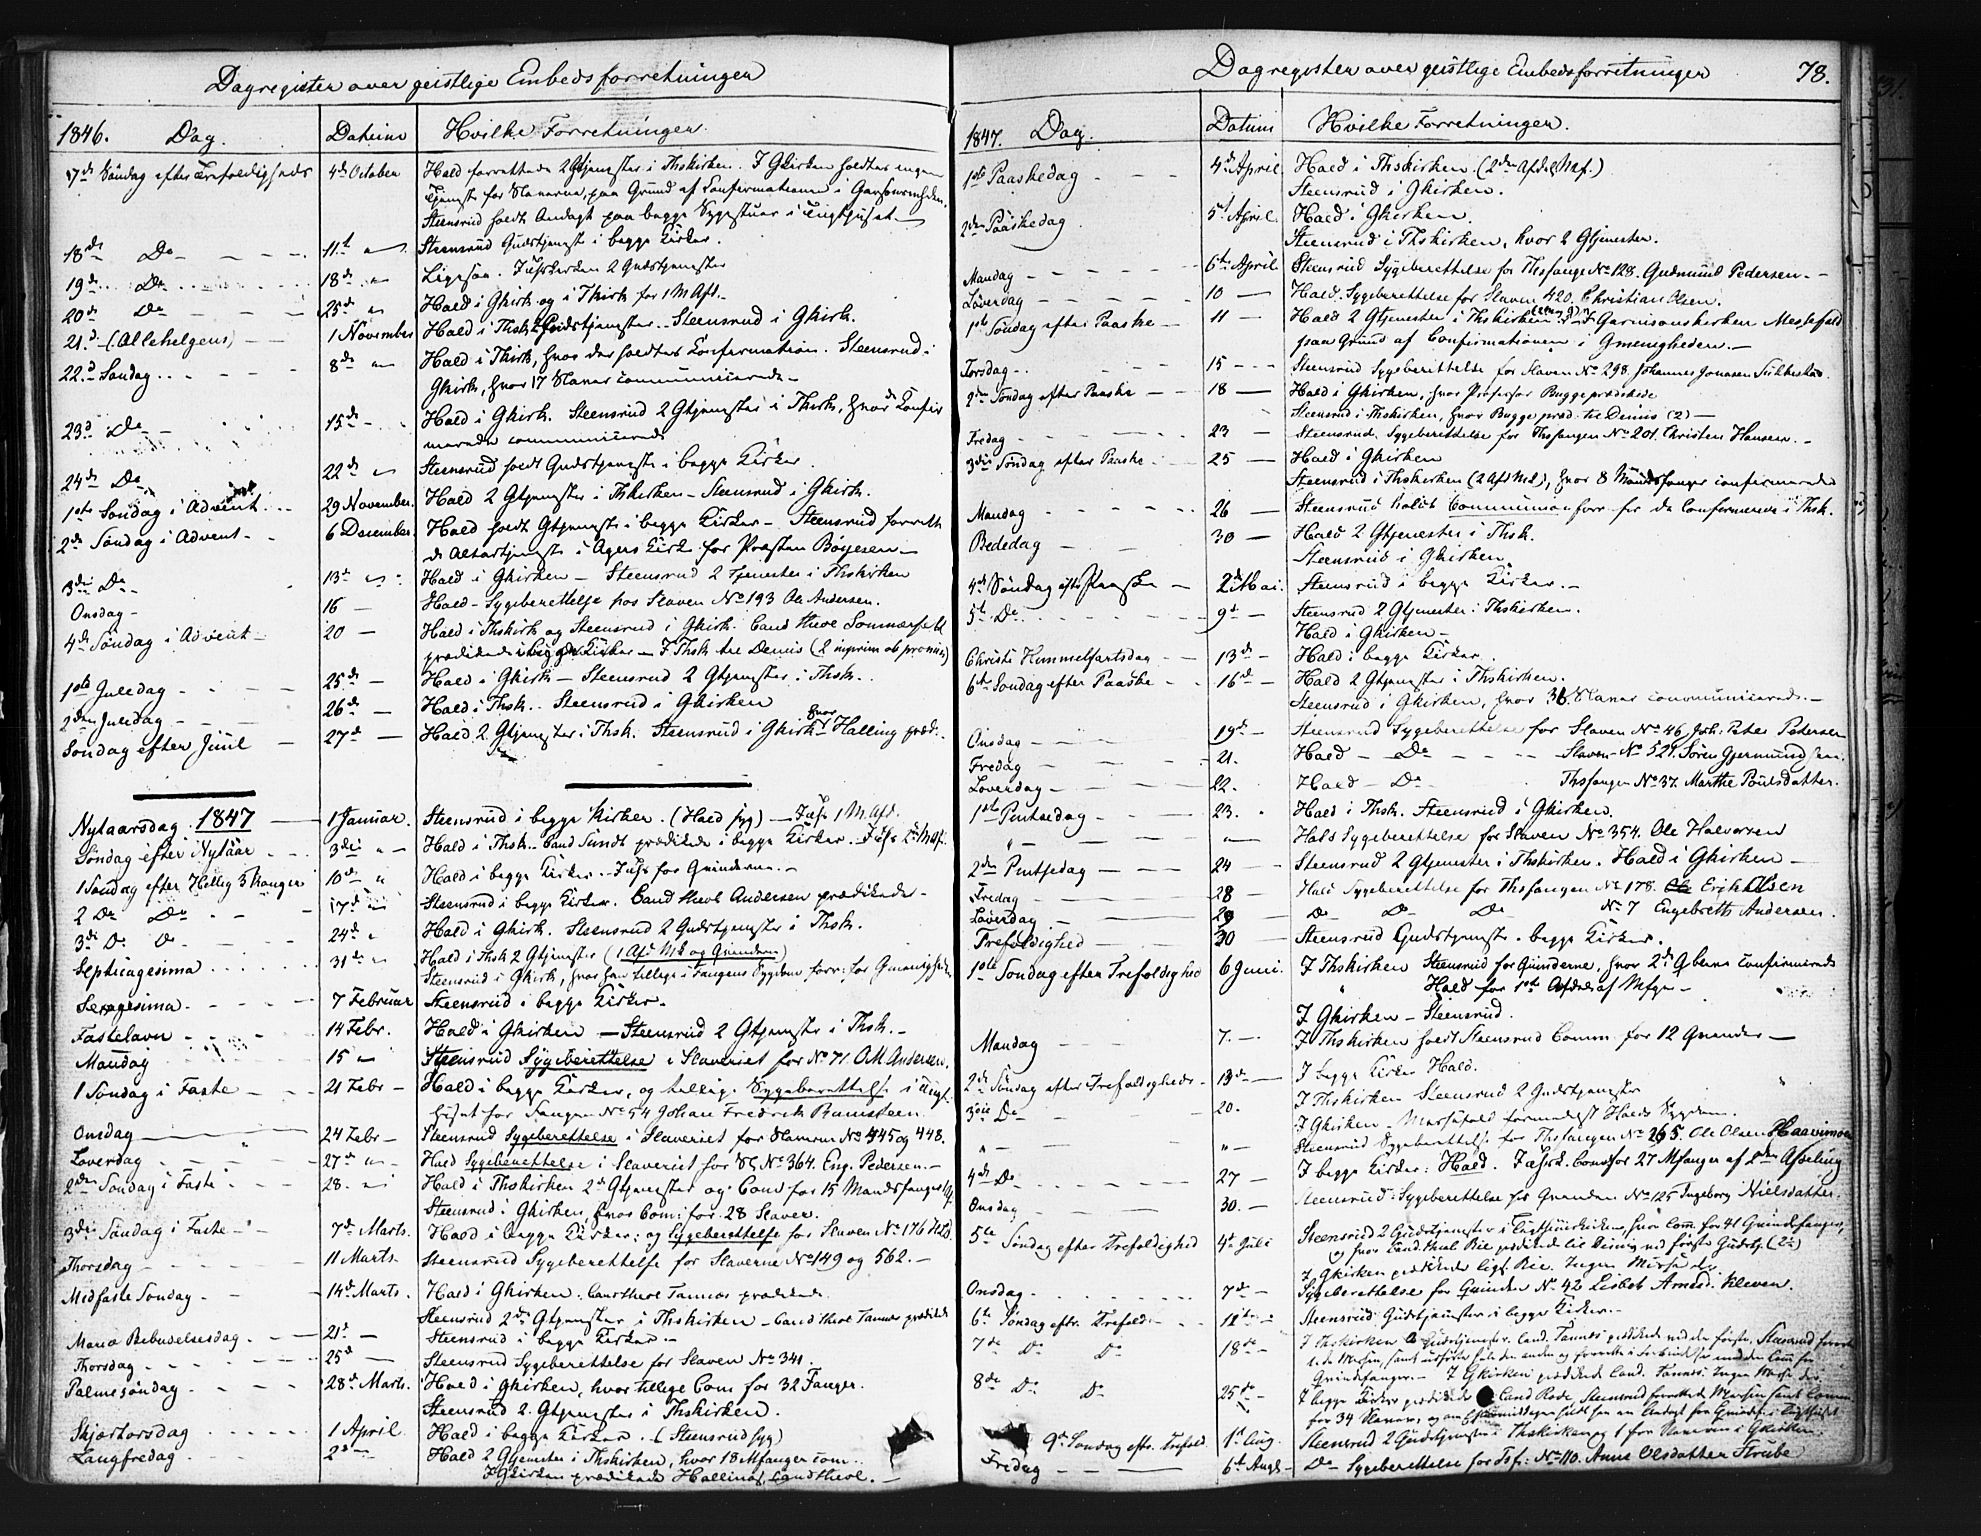 Dagregister over geistlige Embedsforretninger
1846. Dag. Datum Hvilke Forretninger.
17de Søndag efter Trefoldigheds 4de October Hald forrettede 2 Gtjenester i Thskirken. I Gkirken holdtes ingen
Tjeneste for Slaverne, paa Grund af Confirmationen i Garnisonsmghden.
Steensrud holdt Andagt paa begge Sygestuer i Tugthuset
18de Do 11te Steensrud Gudstjeneste i begge Kirker.
19de Do 18de Ligesaa. I Thskirken 2 Gudstjenester
20de Do 25de Hald i Gkirk og i Thkirk for 1 M Afd.
21de (Allehelgens) 1 November Hald i Thsk 2 Gudstjenester. Steensrud i Gkirk.
22d Søndag 8de Hald i Thkirk, hvor der holdtes Confirmation. Steensrud i
Gkirk, hvor 17 Slaver communicerede
23d Do 15de Hald i Gkirk. Steensrud 2 Gtjenester i Thkirk, hvor de Confir
merede communicerede
24de Do 22de Steensrud holdt Gudstjeneste i begge Kirker
1ste Søndag i Advent 29 November. Hald 2 Gtjenester i Thkirken – Steensrud i Gkirk.
2de Søndag i Advent 6 December. Hald holdt Gtjeneste i begge Kirker – Steensrud forrett
de Altertjeneste i Agers Kirke for Præsten Bøyesen
3die Do 13de Hald i Gkirken – Steensrud 2 Tjenester i Thskirken
Onsdag 16 Hald – Sygeberettelse hos Slaven No 193 Ole Andersen.
4de Søndag i Advent 20 Hald i Thskirk og Steensrud i Gkirk. Cand theol Sommerfeldt
prædikede i begge Kirker – I Thsk tre Demis
1ste Juledag 25de Hald i Gkirk – Steensrud 2 Gtjenester i Thsk.
2den Juledag 26de Hald i Thsk. Steensrud i Gkirken
Søndag efter Juul 27de Hald 2 Gtjenester i Thsk. Steensrud i Gkirk hvor Halling præd.
Nytaarsdag 1847 1 Januar. Steensrud i begge Kirker. (Hald syg) – I Thsk 1 M. Afd.
Søndag efter Nytaar 3die Hald i Thsk. Cand Sundt prædikede i begge Kirker.
1 Søndag efter Hellig 3 Konger 10de Hald i begge Kirker
2 Do Do 17de Steensrud i begge Kirker. Cand theol Andersen prædikede
3die Do Do 24de Hald i Gkirk. Steensrud 2 Gudstjenester i Thsk.
Septuagesima 31de Hald i Thsk 2 Gtjenester (1 Afd Mk og Qvinderne)
Steensrud i Gkirk,
Sexagesima 7 Februar Steensrud i begge Kirker
Fastelavn 14 Febr. Hald i Gkirken – Steensrud 2 Gtjenester i Thsk.
Mandag 15 Steensrud Sygeberettelse i Slaveriet for No 71. O.M. Andersen.
1 Søndag i Faste 21 Febr Hald i begge Kirker, og tillige Sygeberettelse i Tugt
huset for Fangen No 54 Johan Fredrik Bumsteen.
Onsdag 24 Febr Steensrud Sygeberettelse i Slaveriet for Slaverne No 445 og 448.
Løverdag 27de Hald Sygeberettelse i Slaveriet for Sl. No 364. Eng. Pedersen.
2den Søndag i Faste 28. Hald i Thskirken 2 Gtjenester og Com for 15 Mandsfanger
Steensrud i Gkirken hvor Com: for 28 Slaver.
3die Søndag i Faste 7de Marts. Hald i begge Kirker; og Sygeberettelse for Slaven No 176
Thorsdag 11 Marts. Steensrud Sygeberettelse for Slaverne No 149 og 562.
Midfaste Søndag 14de Marts. Hald i Gkirken. Cand theol Tannæs prædikede.
Steensrud 2de Gtjenester i Thskirken – Cand theol Tannæs prædikede
Mariæ Bebudelsesdag 21de Steensrud i begge Kirker
Thorsdag 25de Steensrud Sygeberettelse for Slaven No 341.
Palmesøndag 28de Marts. Hald i Gkirken, hvor tillige Com for 32 Fanger.
Steensrud 2 Gtjenester i Thskirken.
Skjærtorsdag 1 April Hald i begge Kirker. (Steensrud syg)
Langfredag 2de Hald 2 Gtjenester i Thskirken, hvor 18 Mfanger com.
I Gkirken prædikede Halling, Cand theol.
Dagregister over geistlige Embedsforretninger 78.
1847. Dag. Datum Hvilke Forretninger.
1ste Paaskedag 4de April Hald i Thskirken. (2den Afdel. Maf.)
Steensrud i Gkirken.
2den Paaskedag 5te April. Hald i Gkirken.
Steensrud i Thskirken, hvor 2 Gtjenester.
Mandag 6te April Steensrud Sygeberettelse for Thsfange No 128. Gudmund Pedersen
Løverdag 10 Hald. Sygeberettelse for Slaven 420. Christian Olsen.
1ste Søndag efter Paaske 11 Hald 2 Gtjenester i Thskirken. I Garnisonskirken Messefald
paa Grund af Confirmationen i Gmenigheden.
Torsdag 15 Steensrud Sygeberettelse for Slaven No 298. Johannes Jonassen
2den Søndag efter Paaske 18 Hald i Gkirken, hvor Professor Bugge prædikede
Steensrud i Thskirken, hvor Bugge præd. til Demis (2)
Fredag 23 Steensrud. Sygeberettelse for Thsfangen No 201. Christen Hansen.
3die Søndag efter Paaske 25 Hald i Gkirken
Steensrud i Thskirken (2 Afd Mk), hvor 8 Mandsfanger confirmerede
Mandag 26 Steensrud holdt Communion forr. for de Confirmerede i Thsk.
Bededag 30 Hald 2 Gtjenester i Thsk.
Steensrud i Gkirken
4de Søndag efter Paaske 2de Mai. Steensrud i begge Kirker.
5te Do 9de Steensrud 2 Gtjenester i Thskirken.
Hald i Gkirken
Christi Himmelfartsdag 13de Hald i begge Kirker.
6te Søndag efter Paaske 16de Hald 2 Gtjenester i Thskirken.
Steensrud i Gkirken, hvor 36 Slaver communicerede.
Onsdag 19de Steensrud Sygeberettelse for Slaven No 46 Joh. Peter Petersen
Fredag 21. Hald Do Slaven No 521. Søren Gjermundsen.
Løverdag 22. Hald Do Thsfangen No 37. Marthe Poulsdatter.
1ste Pentsedag 23. Hald i Thsk. Steensrud i Gkirken.
" Hald Sygeberettelse for Slaven No 354. Ole Halvorsen
2den Pentsedag 24 Steensrud 2 Gtjenester i Thskirken. Hald i Gkirken
Fredag 28 Hald Sygeberettelse for Thsfangen No 178. Erik Olsen
Løverdag 29 Do Do Do No 7 Engebreth Andersen.
Trefoldighed 30 Steensrud Gudstjeneste i begge Kirker.
1ste Søndag efter Trefoldighed 6 Juni. I Thskirken Steensrud for Qvinderne, hvor 2de Qberne confirmerede
" Hald for 1ste Afdel. af Mfge
I Gkirken – Steensrud.
Mandag 7. I Thskirken holdt Steensrud Comm. for 12 Qvinder
2de Søndag efter Trefoldigheds 13de I begge Kirker Hald.
3die Do 20. I Thskirken Steensrud 2 Gudstjenester
I Gkirken – Messefald formedelst Halds Sygdom.
" " Steensrud Sygeberettelse for Thsfangen No 265. Ole Olsen Haavimoen
4de Do 27 I begge Kirker: Hald. I Thsk. Com: for 27 Mfanger af 2den Afdeling
Onsdag 30. Steensrud: Sygeberettelse for Qvinden No 125 Ingeborg Nielsdatter.
5te Søndag efter Trefoldighed 4de Juli Steensrud 2 Gudstjenester i Tugthuuskirken, hvor Com for 41 Qvindefanger,
og hvor Cand. theol Bie prædikede til Dimis ved første Gudstj.
I Gkirken prædikede ligl. Bie. Ingen Messe
Onsdag 7de Sygeberettelse for Qvinden No 42 Lisbet Arnesd. Kleven.
6te Søndag eftr. Trefold. 11te Steensrud Gudstjenester i begge Kirker.
7de Do Do 18de I Thskirken 2 Gudstjenester. Cand. Tannæs prædikede ved den første, Steensrud forret
tede Messen,
Qvindefanger. – I Gkirken prædikede Cand. Tannæs. Ingen Messe
8de Do Do 25de I begge Kirker prædikede Cand Rode, Steensrud forrettede Messen samt Comm.
for 34 Slaver, og om Eftermiddagen holdt han en Andagt for Qvindef. i Tugthuset
9de Søndag eftr. Trefold. 1ste Aug. Steensrud 2 Gudstjenester i Thskirken og 1 for Slaverne i Gkirken.
Fredag 6te Augs Do Sygeberettelse for Tsf: No 110. Anne Olsdatter Strube